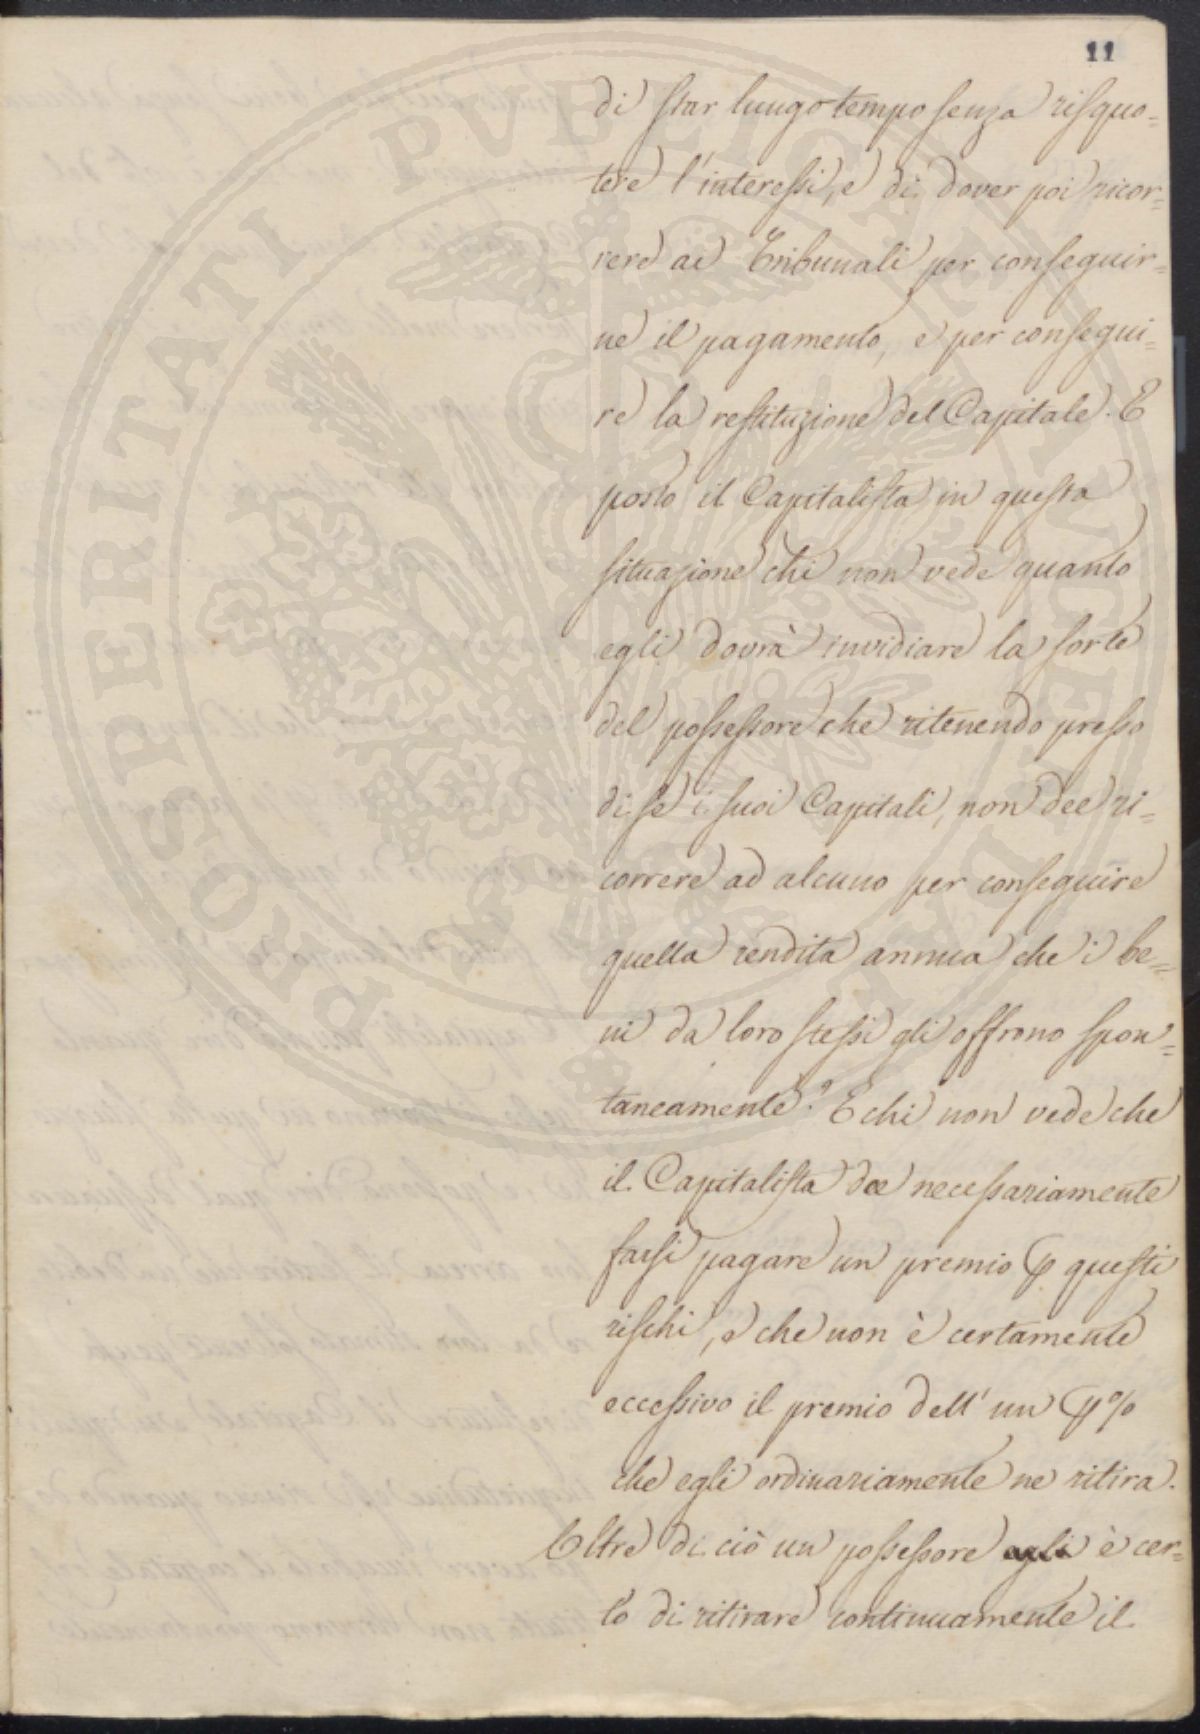 11
di star lungo tempo senza risquo=
tere l'interessi, e di dover poi ricor=
rere ai Tribunali per conseguir=
ne il pagamento, e per consegui=
re la restituzione del Capitale. E
posto il Capitalista in questa
situazione chi non vede quanto
egli dovrà invidiare la sorte
del possessore che ritenendo presso
di se i suoi Capitali, non dee ri=
correre ad alcuno per conseguire
quella rendita annua che i be=
ni da loro stessi gli offrono spon=
taneamente? E chi non vede che
il Capitalista dee necessariamente
farsi pagare un premio p questi
rischi, e che non è certamente
eccessivo il premio dell' un p%
che egli ordinariamente ne ritira.
Oltre di ciò un possessore egli è cer=
to di ritirare continuamente il
PROSPERITATI PVBLICAE